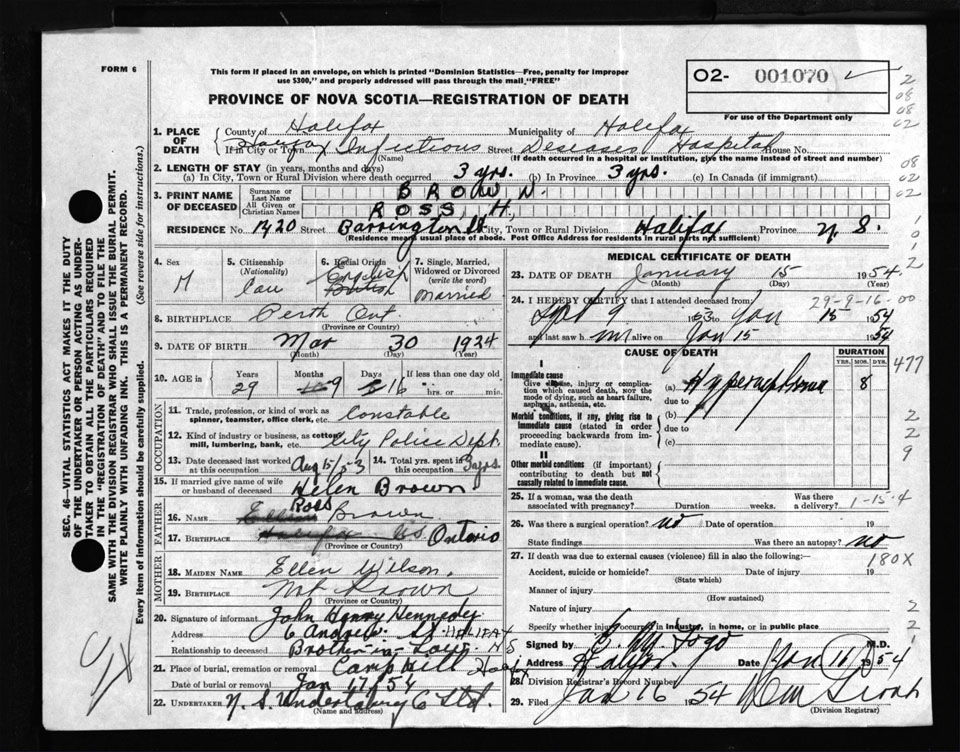 FORM 6
This form if placed in an envelope, on which is printed "Dominion Statistics—Free, penalty for improper
use $300," and properly addressed will pass through the mail "FREE"
O2- 001070
For use of the Department only
PROVINCE OF NOVA SCOTIA—REGISTRATION OF DEATH
1. PLACE OF DEATH { County of Halifax Municipality of Halifax
If in City or Town Halifax Infectious Street Diseases Hospital House No.
(Name) (If death occurred in a hospital or institution, give the name instead of street and number)
2. LENGTH OF STAY (in years, months and days)
(a) In City, Town or Rural Division where death occurred 3 yrs. (b) In Province 3 yrs. (c) In Canada (if immigrant)
3. PRINT NAME OF DECEASED { Surname or Last Name BROWN
All Given or Christian Names ROSS H.
RESIDENCE No. 1420 Street Barrington St City, Town or Rural Division Halifax Province N.S.
(Residence means usual place of abode. Post Office Address for residents in rural parts not sufficient)
4. Sex M
5. Citizenship (Nationality) Can
6. Racial Origin English British
7. Single, Married, Widowed or Divorced (write the word) Married
8. BIRTHPLACE Perth Ont
(Province or Country)
9. DATE OF BIRTH Mar 30 1924
(Month) (Day) (Year)
10. AGE in { Years Months Days If less than one day
29 9 16 hrs. or min.
OCCUPATION
11. Trade, profession, or kind of work as spinner, teamster, office clerk, etc. Constable
12. Kind of industry or business, as cotton mill, lumbering, bank, etc. City Police Dept
13. Date deceased last worked at this occupation Aug 15/53
14. Total yrs. spent in this occupation 3 yrs.
15. If married give name of wife or husband of deceased Helen Brown
FATHER
16. NAME Ross Brown
17. BIRTHPLACE Halifax NS Ontario
(Province or Country)
MOTHER
18. MAIDEN NAME Ellen Wilson
19. BIRTHPLACE Not Known
(Province or Country)
20. Signature of informant John Henry Kennedy
Address 6 Andrew St Halifax
Relationship to deceased Brother-in-Law NS
21. Place of burial, cremation or removal Camp Hill Halifax
Date of burial or removal Jan 17/54
22. UNDERTAKER N.S. Undertaking Co Ltd.
(Name and address)
MEDICAL CERTIFICATE OF DEATH
23. DATE OF DEATH January 15 1954
(Month) (Day) (Year)
29-9-16-00
24. I HEREBY CERTIFY that I attended deceased from:
Sept 9 1953 to Jan 15 1954
and last saw h m alive on Jan 15 1954
CAUSE OF DEATH
DURATION
YRS. MOS. DYS.
I
Immediate cause
Give disease, injury or complication which caused DEATH, NOT the mode of dying, such as heart failure, asphyxia, asthenia, etc.
(a) Hypernephroma 8
due to
Morbid conditions, if any, giving rise to immediate cause (stated in order proceeding backwards from immediate cause).
(b)
due to
(c)
II
Other morbid conditions (if important) contributing to death but not causally related to immediate cause.
25. If a woman, was the death associated with pregnancy? Duration weeks. Was there a delivery?
1-15-4
26. Was there a surgical operation? no Date of operation 19
State findings Was there an autopsy? no
27. If death was due to external causes (violence) fill in also the following:—
180X
Accident, suicide or homicide? Date of injury 19
(State which)
Manner of injury
(How sustained)
Nature of injury
Specify whether injury occurred in industry, in home, or in public place
Signed by M.D.
Address Halifax Date Jan 16 1954
28. Division Registrar's Record Number
29. Filed Jan 16 1954
(Division Registrar)
SEC. 46—VITAL STATISTICS ACT MAKES IT THE DUTY
OF THE UNDERTAKER OR PERSON ACTING AS UNDERTAKER TO OBTAIN ALL THE PARTICULARS REQUIRED
IN THE "REGISTRATION OF DEATH" AND TO FILE THE
SAME WITH THE DIVISION REGISTRAR WHO SHALL ISSUE THE BURIAL PERMIT.
WRITE PLAINLY WITH UNFADING INK. THIS IS A PERMANENT RECORD.
Every item of information should be carefully supplied. (See reverse side for instructions.)